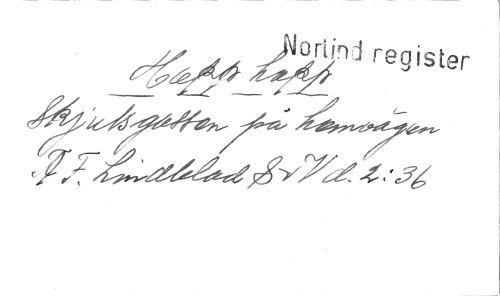 Norlind register
Hæpp happ
Skjutsgossen på hemvägen
A F. Lindblad SvV d. 2:36